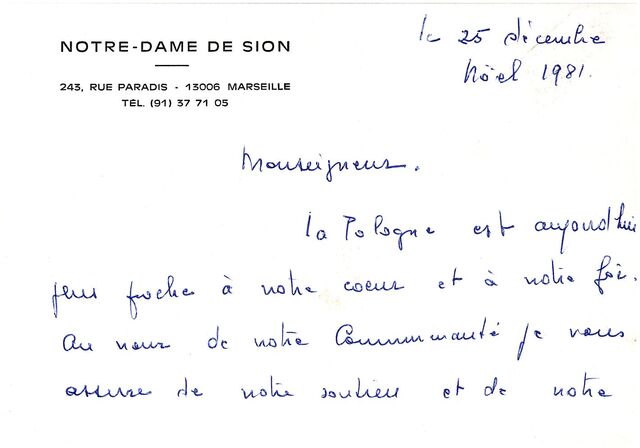 NOTRE-DAME DE SION
243, RUE PARADIS - 13006 MARSEILLE
TÉL. (91) 37 71 05
le 25 décembre
Nöel 1981.
Monseigneur.
la Pologne est aujourd'hui
plus proche à notre coeur et à notre foi.
Au nom de notre Communauté je vous
assure de notre soutien et de notre